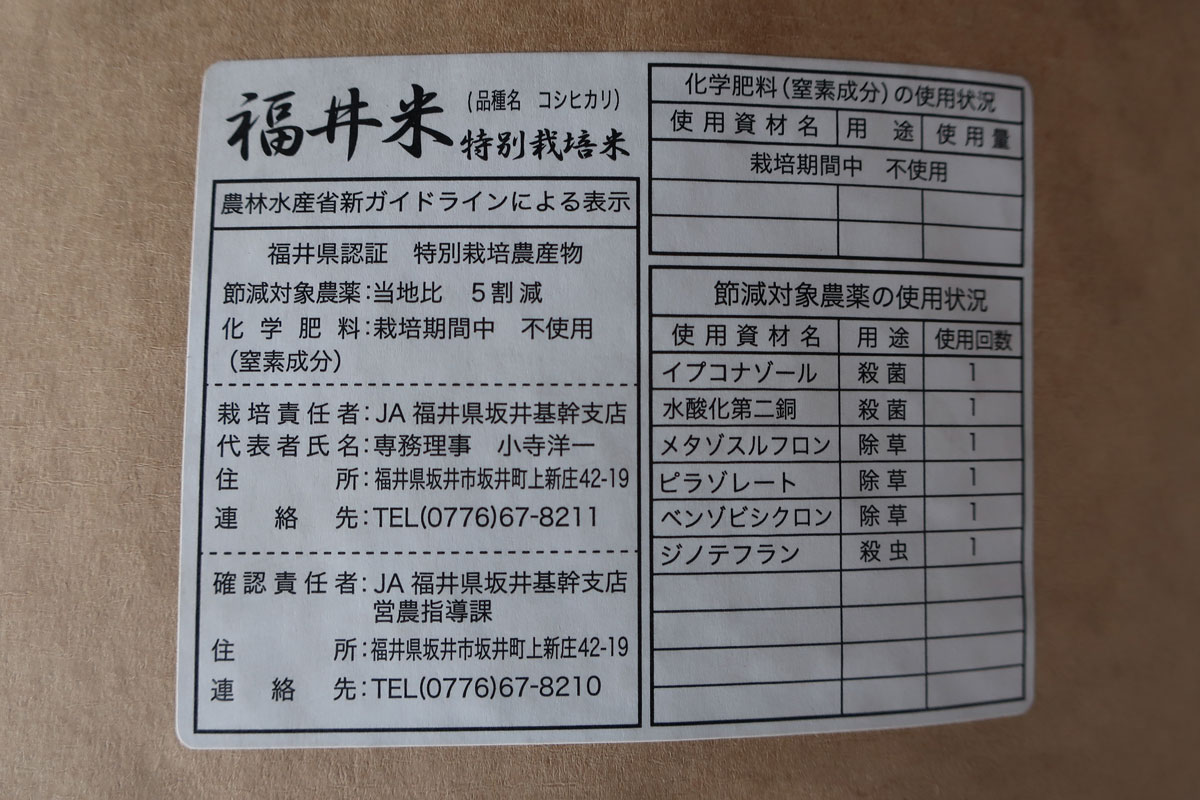 福井米
(品種名 コシヒカリ)
特別栽培米
農林水産省新ガイドラインによる表示
福井県認証 特別栽培農産物
節減対象農薬:当地比 5割減
化学肥料:栽培期間中 不使用
(窒素成分)
栽培責任者:JA 福井県坂井基幹支店
代表者氏名:専務理事 小寺洋一
住所:福井県坂井市坂井町上新庄42-19
連絡先:TEL(0776)67-8211
確認責任者:JA 福井県坂井基幹支店
営農指導課
住所:福井県坂井市坂井町上新庄42-19
連絡先:TEL(0776)67-8210
化学肥料(窒素成分)の使用状況
使用資材名 用途 使用量
栽培期間中 不使用
節減対象農薬の使用状況
使用資材名 用途 使用回数
イプコナゾール 殺菌 1
水酸化第二銅 殺菌 1
メタゾスルフロン 除草 1
ピラゾレート 除草 1
ベンゾビシクロン 除草 1
ジノテフラン 殺虫 1